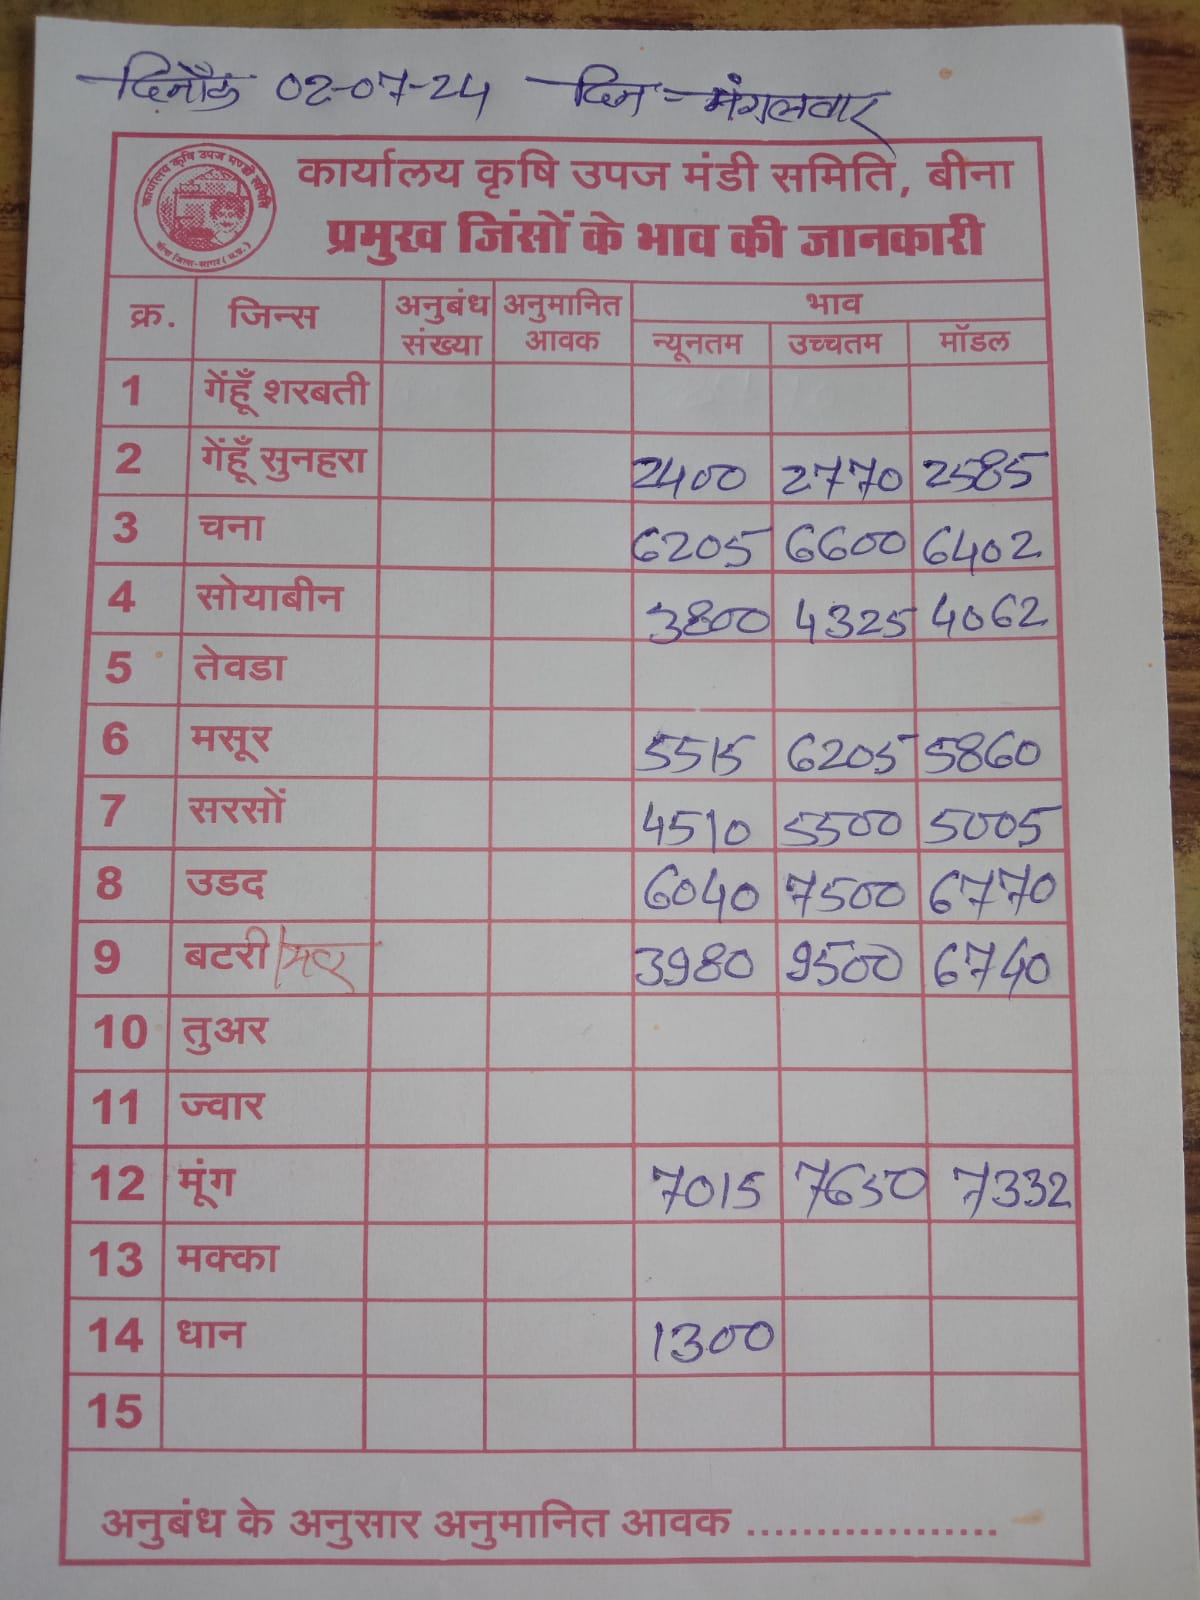 दिनाँक 02-07-24 दिन - मंगलवार
कार्यालय कृषि उपज मण्डी समिति
बीना जिला-सागर (म.प्र.)
कार्यालय कृषि उपज मंडी समिति, बीना
प्रमुख जिंसों के भाव की जानकारी
क्र. जिन्स अनुबंध संख्या अनुमानित आवक भाव
न्यूनतम उच्चतम मॉडल
1 गेंहूँ शरबती
2 गेंहूँ सुनहरा 2400 2770 2585
3 चना 6205 6600 6402
4 सोयाबीन 3800 4325 4062
5 तेवडा
6 मसूर 5515 6205 5860
7 सरसों 4510 5500 5005
8 उडद 6040 7500 6770
9 बटरी/मटर 3980 9500 6740
10 तुअर
11 ज्वार
12 मूंग 7015 7650 7332
13 मक्का
14 धान 1300
15
अनुबंध के अनुसार अनुमानित आवक ...................